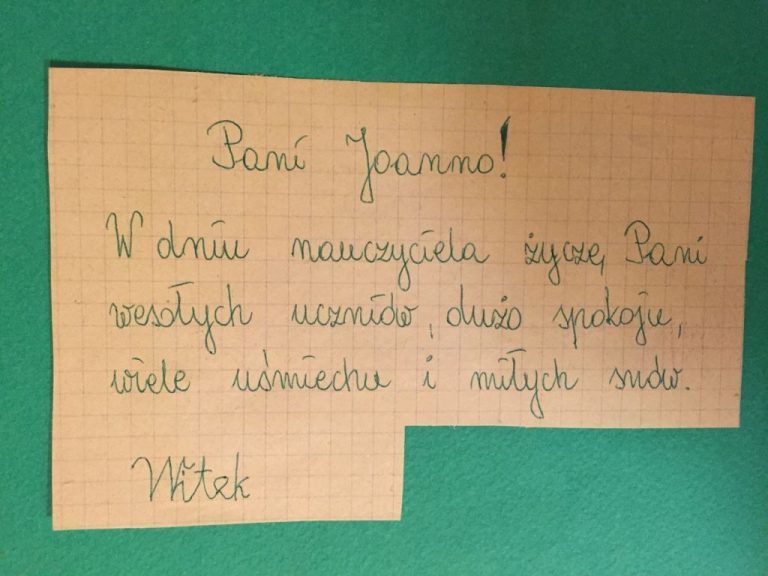 Pani Joanno!
W dniu nauczyciela życzę Pani
wesołych uczniów, dużo spokoju,
wiele uśmiechu i miłych snów.
Witek